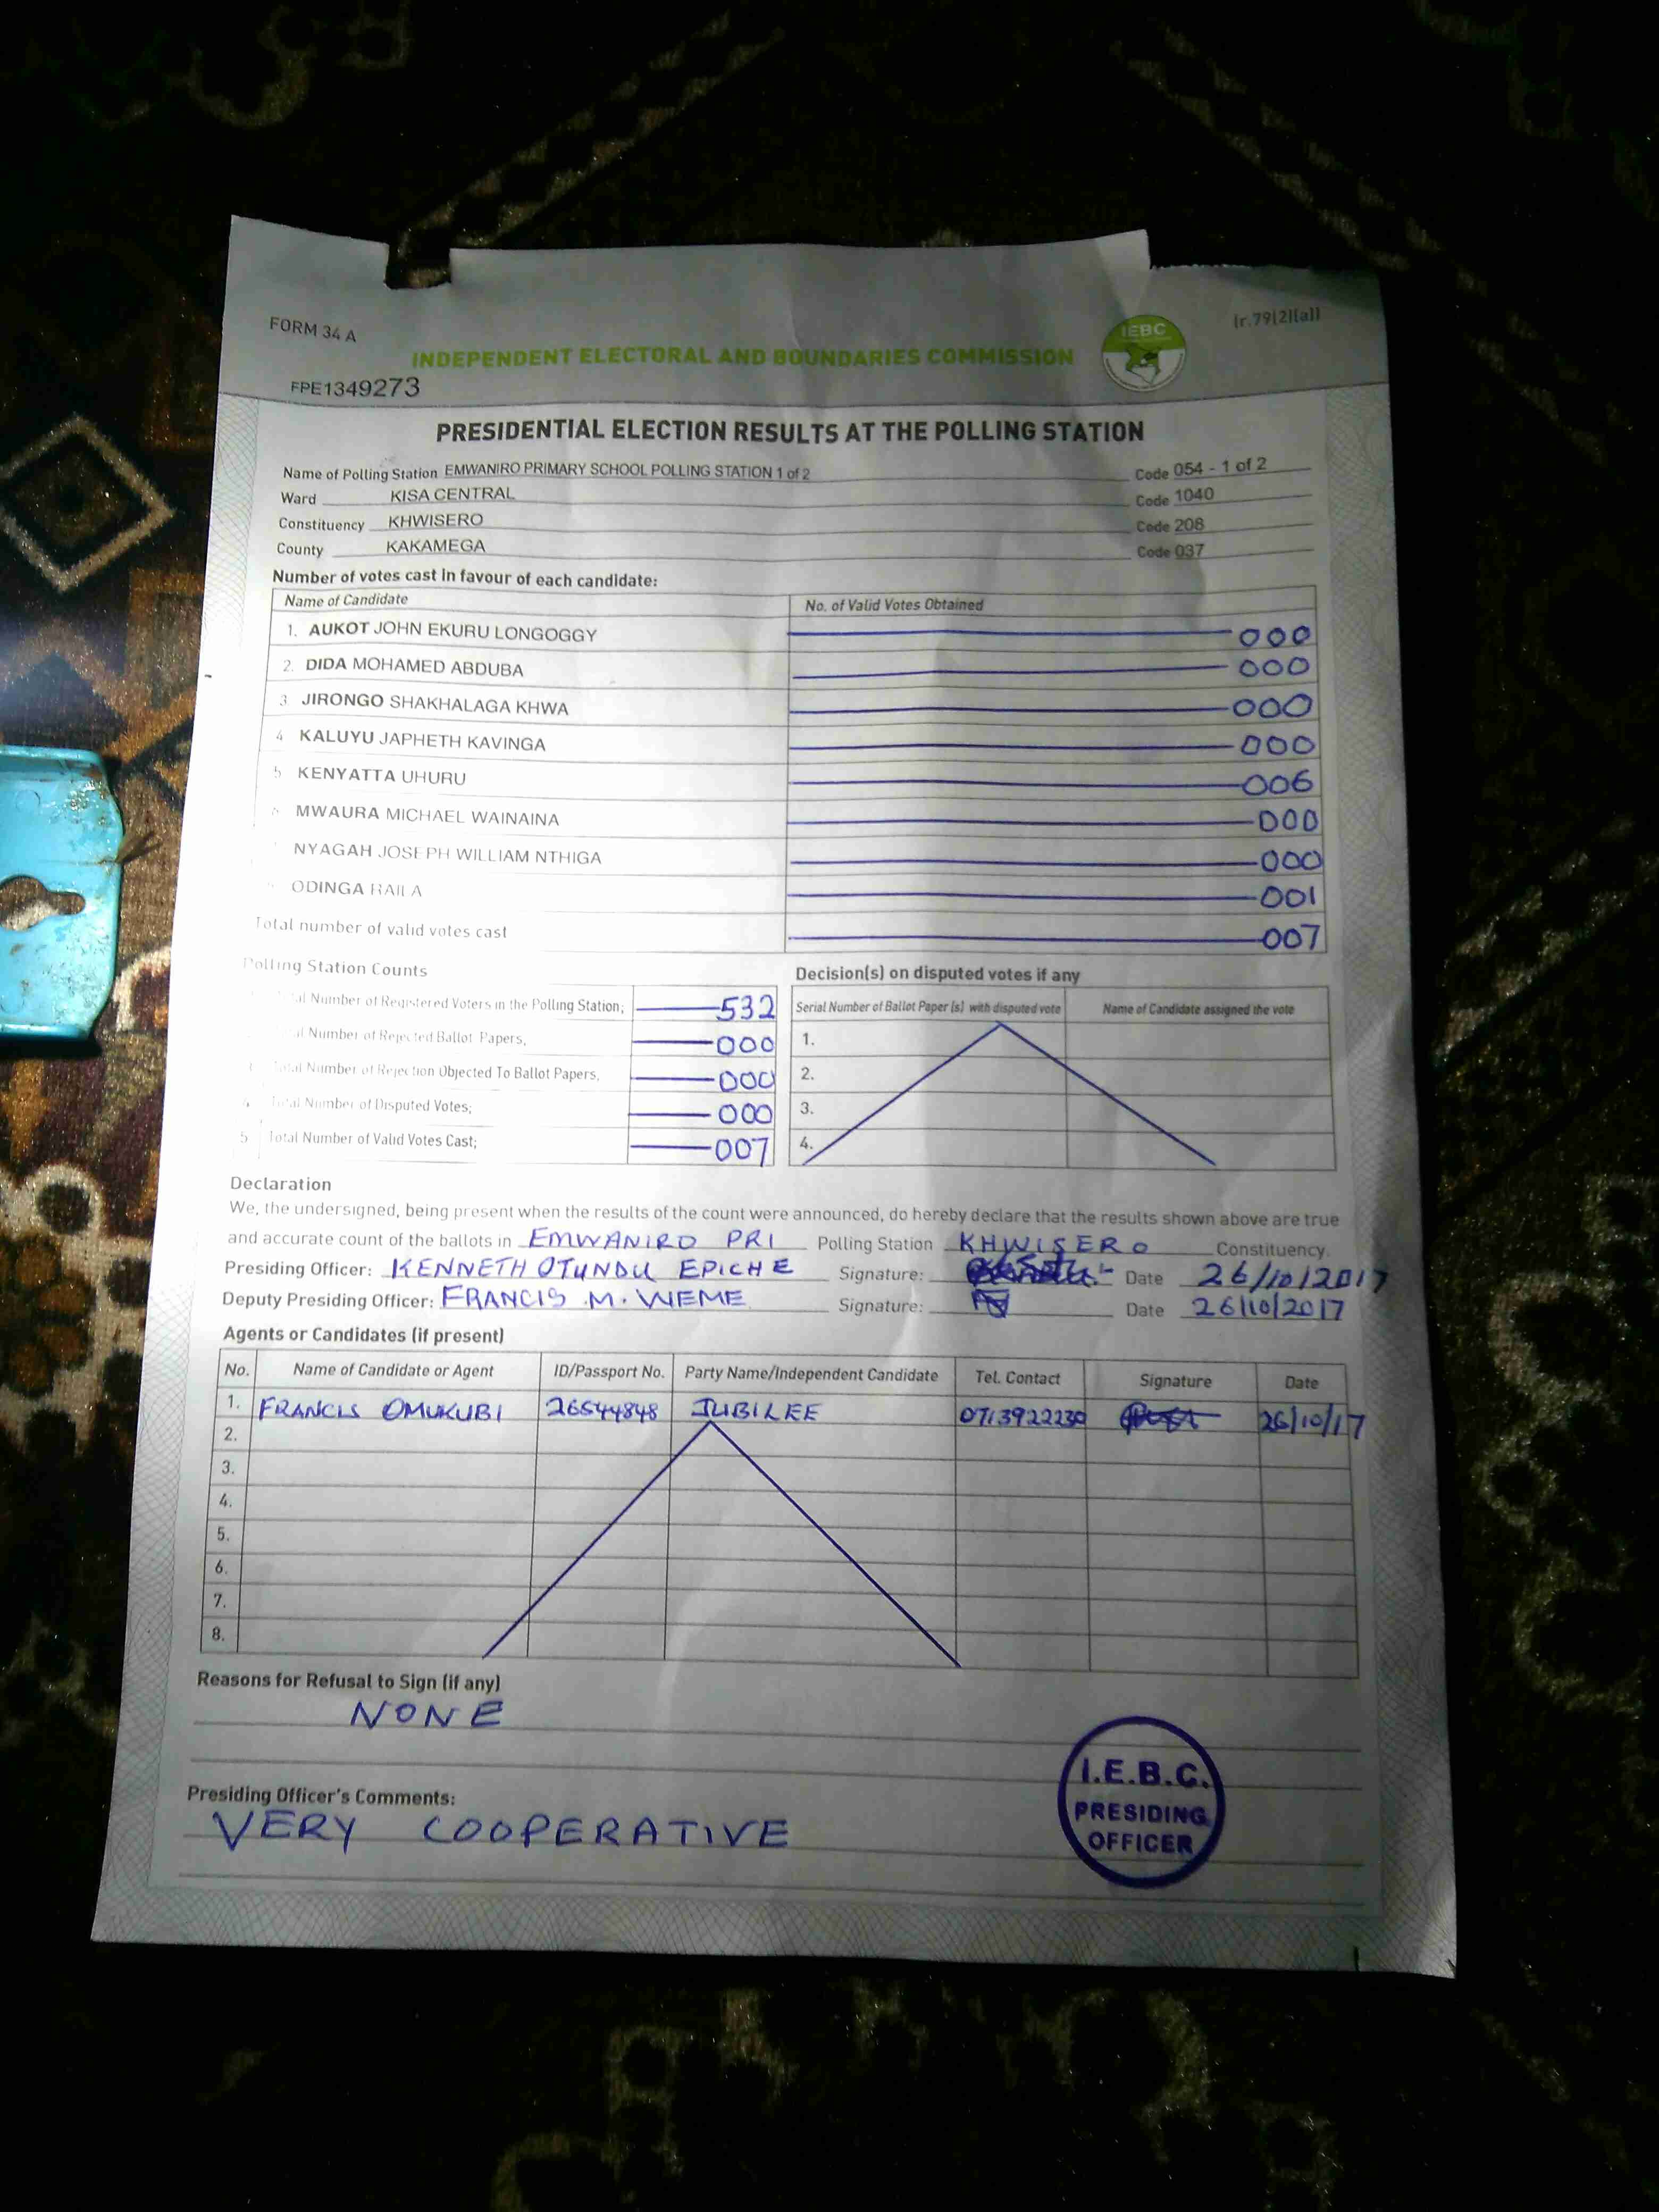 FORM 34 A
(r.79(2)(a))
IEBC
INDEPENDENT ELECTORAL AND BOUNDARIES COMMISSION
FPE1349273
PRESIDENTIAL ELECTION RESULTS AT THE POLLING STATION
Name of Polling Station EMWANIRO PRIMARY SCHOOL POLLING STATION 1 of 2 Code 054 - 1 of 2
Ward KISA CENTRAL Code 1040
Constituency KHWISERO Code 208
County KAKAMEGA Code 037
Number of votes cast in favour of each candidate:
Name of Candidate No. of Valid Votes Obtained
1. AUKOT JOHN EKURU LONGOGGY 000
2. DIDA MOHAMED ABDUBA 000
3. JIRONGO SHAKHALAGA KHWA 000
4 KALUYU JAPHETH KAVINGA 000
5 KENYATTA UHURU 006
MWAURA MICHAEL WAINAINA 000
NYAGAH JOSEPH WILLIAM NTHIGA 000
ODINGA RAILA 001
Total number of valid votes cast 007
Polling Station Counts
Total Number of Registered Voters in the Polling Station; 532
Total Number of Rejected Ballot Papers, 000
Total Number of Rejection Objected To Ballot Papers, 000
4 Total Number of Disputed Votes; 000
5 Total Number of Valid Votes Cast; 007
Decision(s) on disputed votes if any
Serial Number of Ballot Paper (s) with disputed vote Name of Candidate assigned the vote
1.
2.
3.
4.
Declaration
We, the undersigned, being present when the results of the count were announced, do hereby declare that the results shown above are true
and accurate count of the ballots in EMWANIRO PRI Polling Station KHWISERO Constituency.
Presiding Officer: KENNETH OTUNDU EPICHE Signature: Date 26/10/2017
Deputy Presiding Officer: FRANCIS .M. WEME Signature: Date 26/10/2017
Agents or Candidates (if present)
No. Name of Candidate or Agent ID/Passport No. Party Name/Independent Candidate Tel. Contact Signature Date
1. FRANCIS OMUKUBI 26544848 JUBILEE 0713922230 26/10/17
2.
3.
4.
5.
6.
7.
8.
Reasons for Refusal to Sign (if any)
NONE
Presiding Officer's Comments:
VERY COOPERATIVE
I.E.B.C.
PRESIDING
OFFICER